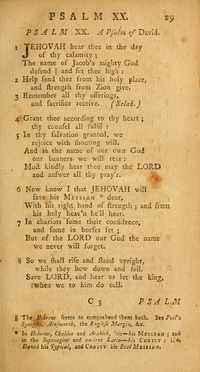 PSALM XX. 29
PSALM XX. A Psalm of David.
1 JEHOVAH hear thee in the day
of thy calamity:
The name of Jacob's mighty God
defend & set thee high:
2 Help send thee from his holy place,
and strength from Zion give.
3 Remember all thy offerings,
and sacrifice receive. (Selah.)
4 Grant thee according to thy heart;
thy counsel all fulfil:
5 In thy salvation granted, we
rejoice with shouting will.
And in the name of our own God
our banners we will rear:
Most kindly hear they may the LORD
and answer all thy pray'rs.
6 Now know I that JEHOVAH will
save his MESSIAH * dear,
With his right hand of strength; and from
his holy heav'n he'll hear.
7 In chariots some their confidence,
and some in horses set;
But of the LORD our God the name
we never will forget.
8 So we shall rise and stand upright,
while they bow down and fall.
Save LORD, and hear us let the king,
when we to him do call.
C 3 PSALM
§ The Hebrew seems to comprehend them both. See Pool's
Synopsis, Ainsworth, the English Margin, &c.
* In Hebrew, MESSIAH; and
in the Septuagint and CHRIST:
David his Typical, and CHRIST his Real MESSIAH.